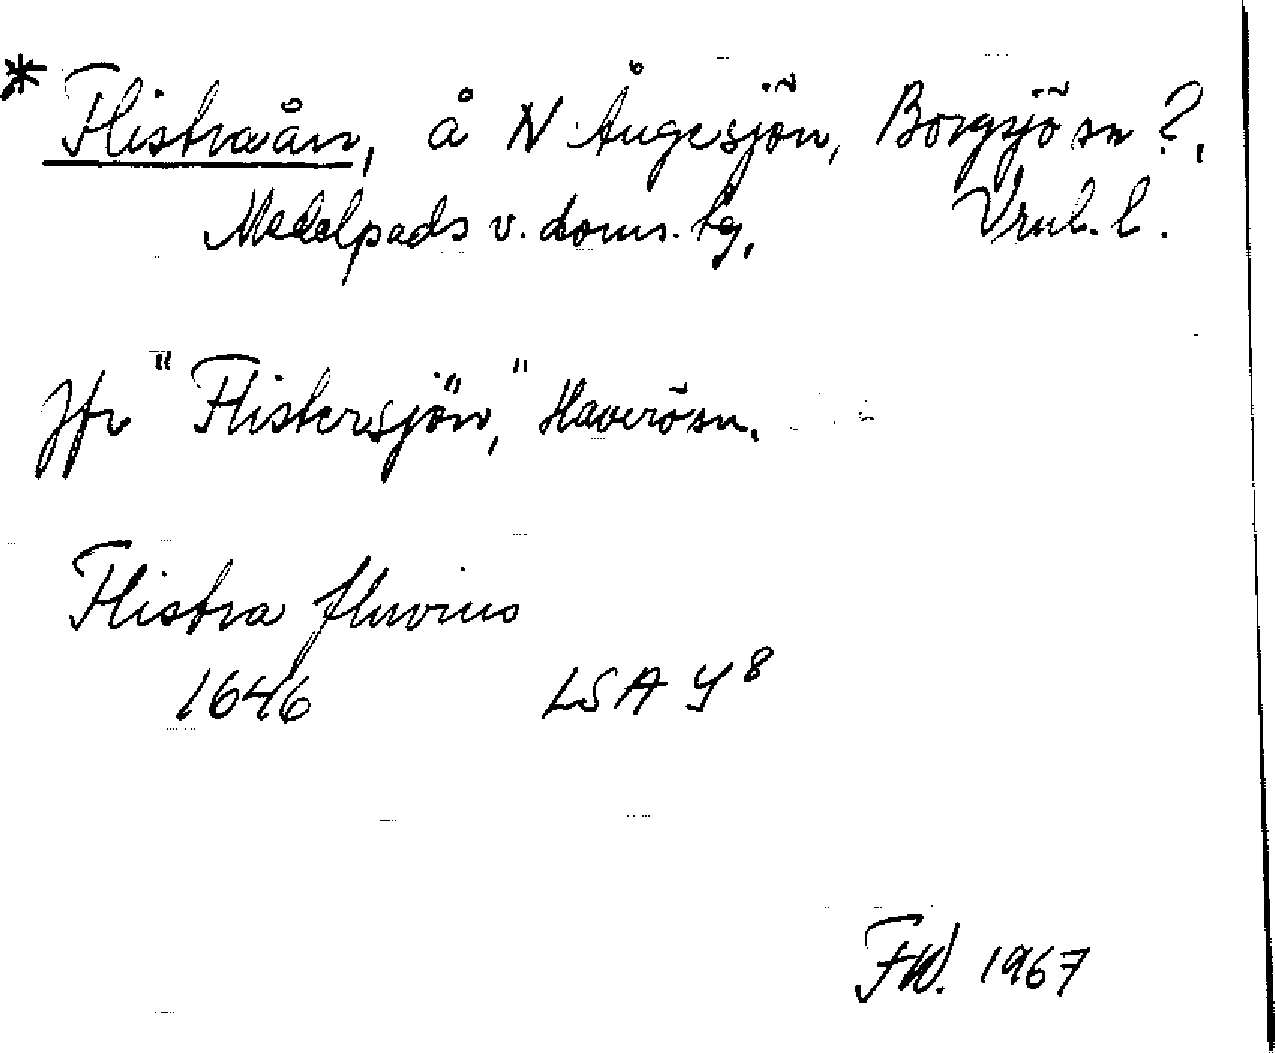 * Flistraån, å N Ångesjön, Borgsjö sn?,
Medelpads v. doms. tg, Vrnl. l.
Jfr "Flistersjön," Haverö sn.
Flistra fluvius
1646 LSA Y 8
FW. 1967